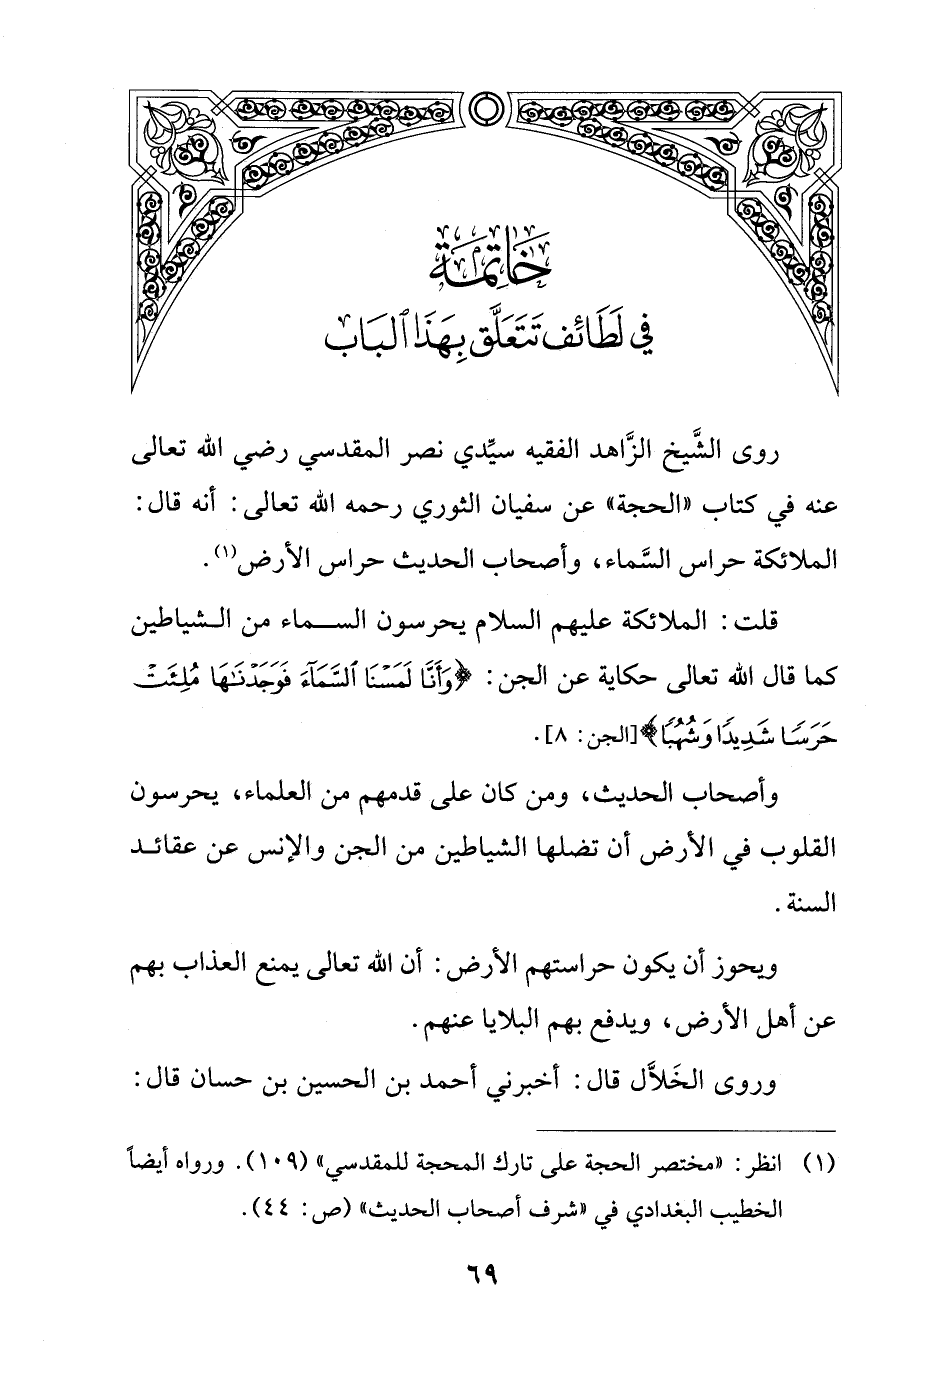 خَاتِمَة
فِي لَطَائِف تَتَعَلَّق بِهَذَا ٱلبَاب
روى الشَّيخ الزَّاهد الفقيه سيِّدي نصر المقدسي رضي الله تعالى
عنه في كتاب «الحجة» عن سفيان الثوري رحمه الله تعالى: أنه قال:
الملائكة حراس السَّماء، وأصحاب الحديث حراس الأرض(١).
قلت: الملائكة عليهم السلام يحرسون السماء من الشياطين
كما قال الله تعالى حكاية عن الجن: ﴿وَأَنَّا لَمَسْنَا ٱلسَّمَآءَ فَوَجَدْنَٰهَا مُلِئَتْ
حَرَسًا شَدِيدًا وَشُهُبًا﴾[الجن: ٨].
وأصحاب الحديث، ومن كان على قدمهم من العلماء، يحرسون
القلوب في الأرض أن تضلها الشياطين من الجن والإنس عن عقائد
السنة.
ويحوز أن يكون حراستهم الأرض: أن الله تعالى يمنع العذاب بهم
عن أهل الأرض، ويدفع بهم البلايا عنهم.
وروى الخَلاَّل قال: أخبرني أحمد بن الحسين بن حسان قال:
(١) انظر: «مختصر الحجة على تارك المحجة للمقدسي» (١٠٩). ورواه أيضاً
الخطيب البغدادي في «شرف أصحاب الحديث» (ص: ٤٤).
٦٩